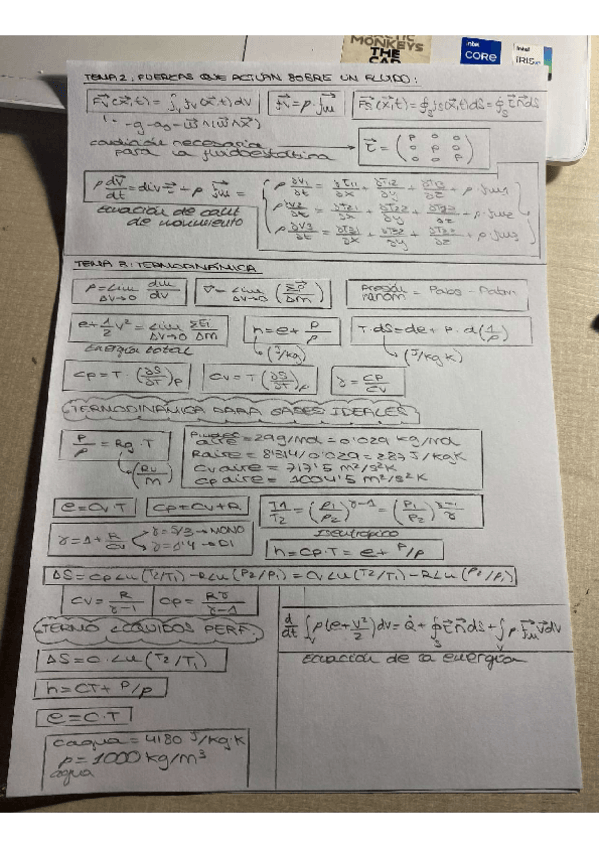 MONKEYS
THE CAR
intel
CORE
intel
IRIS xe
TEMA 2: FUERZAS QUE ACTUAN SOBRE UN FLUIDO:
Fv(x,t) = ∫v fv(x,t)dV   fv = ρ·fm   Fs(x,t) = ∮s fs(x,t)ds = ∮s τ n ds
-g - a0 - ω∧(ω∧x)
condición necesaria para la fluidoestática → τ = (p 0 0 / 0 p 0 / 0 0 p)
ρ dv/dt = div τ + ρ fm =
ρ ∂V1/∂t = ∂τ11/∂x + ∂τ12/∂y + ∂τ13/∂z + ρ·fm1
ρ ∂V2/∂t = ∂τ21/∂x + ∂τ22/∂y + ∂τ23/∂z + ρ·fm2
ρ ∂V3/∂t = ∂τ31/∂x + ∂τ32/∂y + ∂τ33/∂z + ρ·fm3
Ecuación de cant de movimiento
TEMA 3: TERMODINÁMICA
ρ = Lim ΔV→0 dm/dv   V = Lim ΔV→0 (ΣP/Δm)   Presión manom = Pabs - Patm
e + 1/2 v² = Lim ΔV→0 ΣEi/Δm   h = e + P/ρ   T·ds = de + P·d(1/ρ)
Energía total   (J/kg)   (J/kg K)
Cp = T·(∂S/∂T)p   Cv = T(∂S/∂T)ρ   γ = CP/CV
TERMODINÁMICA PARA GASES IDEALES
P/ρ = Rg·T
(Ru/m)
aire = 29g/mol = 0'029 kg/mol
Raire = 8'314/0'029 = 287 J/kgK
Cv aire = 717'5 m²/s²K
Cp aire = 1004'5 m²/s²K
e = Cv T   Cp = Cv + R   T1/T2 = (ρ1/ρ2)^γ-1 = (P1/P2)^γ-1/γ
Isentrópico
γ = 1 + R/Cv   γ = 5/3 → MONO
γ = 1'4 → DI
h = CP·T = e + P/ρ
ΔS = Cp Ln(T2/T1) - R Ln(P2/P1) = Cv Ln(T2/T1) - R Ln(ρ2/ρ1)
CV = R/γ-1   CP = Rγ/γ-1
TERMO LÍQUIDOS PERF.
d/dt ∫ ρ(e + v²/2)dv = Q̇ + ∮s τ n ds + ∫v ρ·fm v dv
Ecuación de la energía
ΔS = C·Ln(T2/T1)
h = CT + P/ρ
e = C·T
Cagua = 4180 J/kg·K
ρ = 1000 kg/m³
agua